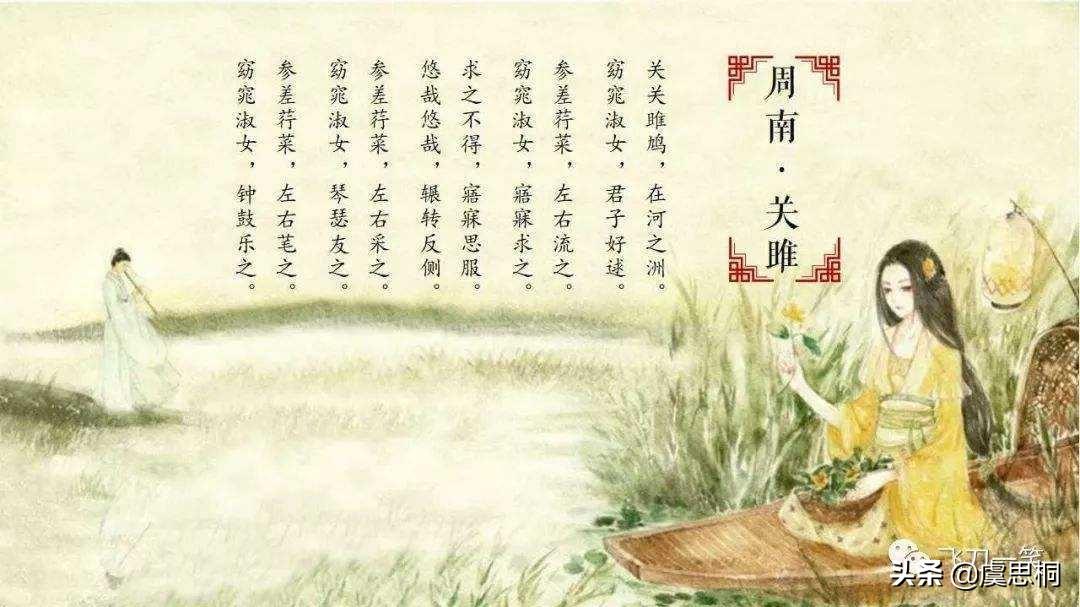 周南·关雎
关关雎鸠，在河之洲。
窈窕淑女，君子好逑。
参差荇菜，左右流之。
窈窕淑女，寤寐求之。
求之不得，寤寐思服。
悠哉悠哉，辗转反侧。
参差荇菜，左右采之。
窈窕淑女，琴瑟友之。
参差荇菜，左右芼之。
窈窕淑女，钟鼓乐之。
飞刀一笑
头条 @虞思桐